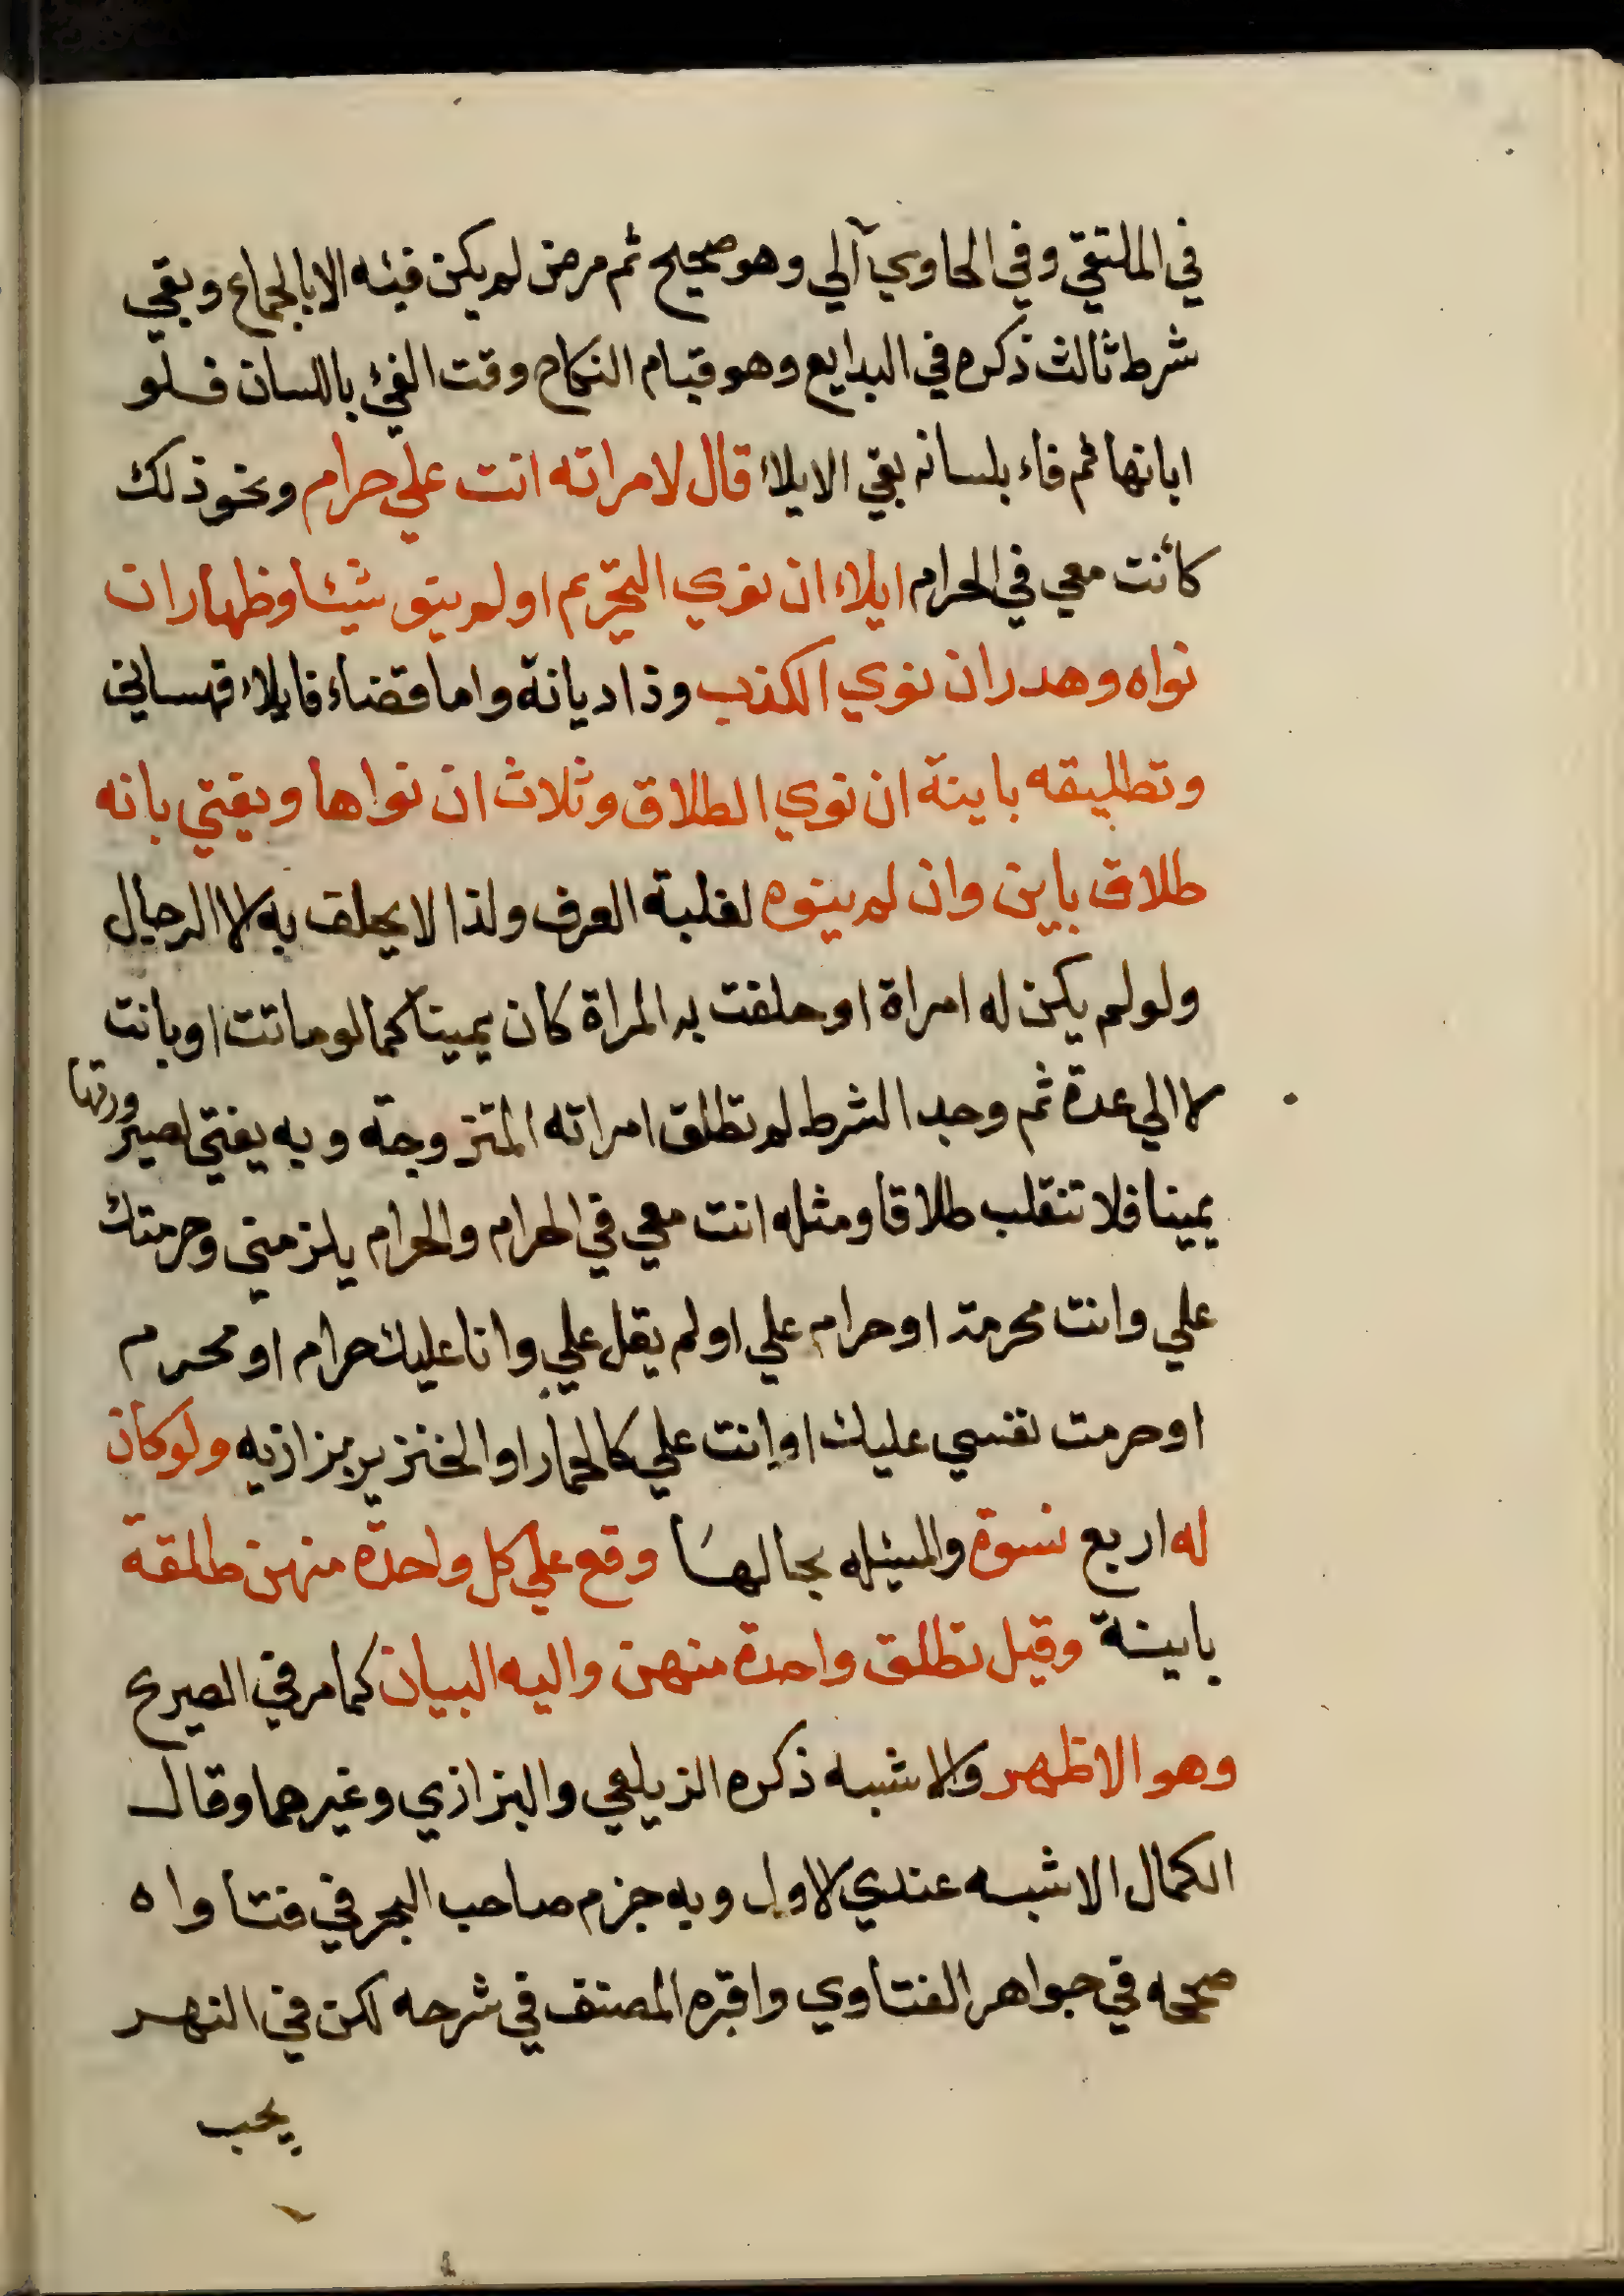 في الملتقي وفي الحاوي آلي وهو صحيح ثم مرض لم يكن فيئه الا بالجماع وبقي
شرط ثالث ذكره في البدايع وهو قيام النكاح وقت الفئ باللسان فلو
ابانها ثم فاء بلسانه بقي الايلاء قال لامراته انت علي حرام ونحو ذلك
كأنت معي في الحرام ايلاء ان نوي التحريم او لم ينو شيئا وظهار ان
نواه وهدر ان نوي الكذب وذا ديانة واما قضاء فايلاء قهساني
وتطليقه باينة ان نوي الطلاق وثلاث ان نواها ويفتي بانه
طلاق باين وان لم ينوه لغلبة العرف ولذا لا يحلف به الا الرجال
ولو لم يكن له امراة او حلفت به المراة كان يمينا كما لو ماتت او بانت
لا الي عدة ثم وجد الشرط لم تطلق امراته المتزوجة وبه يفتي لصيرورتها
يمينا فلا تنقلب طلاقا ومثله انت معي في الحرام والحرام يلزمني وحرمتك
علي وانت محرمة او حرام علي او لم يقل علي وانا عليك حرام او محرم
او حرمت نفسي عليك او انت علي كالحمار او الخنزير بزازيه ولو كان
له اربع نسوة والمسئله بحالها وقع علي كل واحدة منهن طلقة
باينة وقيل تطلق واحدة منهن واليه البيان كما مر في الصريح
وهو الاظهر والاشبه ذكره الزيلعي والبزازي وغيرهما وقال
الكمال الاشبه عندي الاول وبه جزم صاحب البحر في فتاواه
صححه في جواهر الفتاوي واقره المصنف في شرحه لكن في النهر
يجب